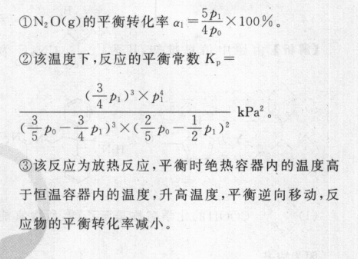 ①N₂O(g)的平衡转化率 α₁=5p₁/4p₀×100%。
②该温度下,反应的平衡常数 Kₚ=
(3/4 p₁)³×p₁⁴ / (3/5 p₀-3/4 p₁)³×(2/5 p₀-1/2 p₁)² kPa²。
③该反应为放热反应,平衡时绝热容器内的温度高
于恒温容器内的温度,升高温度,平衡逆向移动,反
应物的平衡转化率减小。